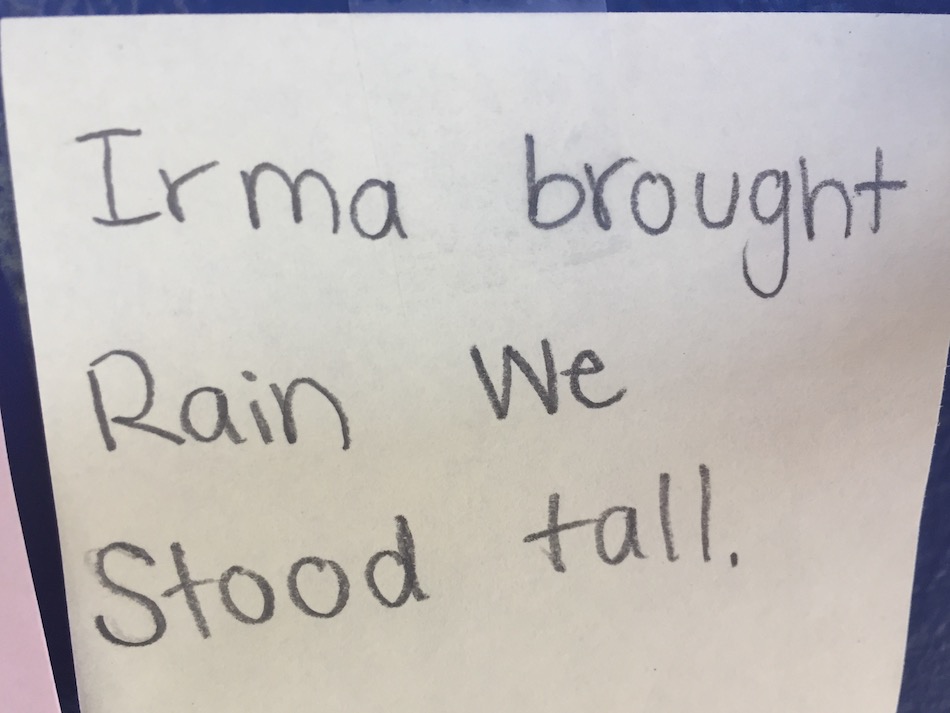 Irma brought
Rain We
Stood tall.